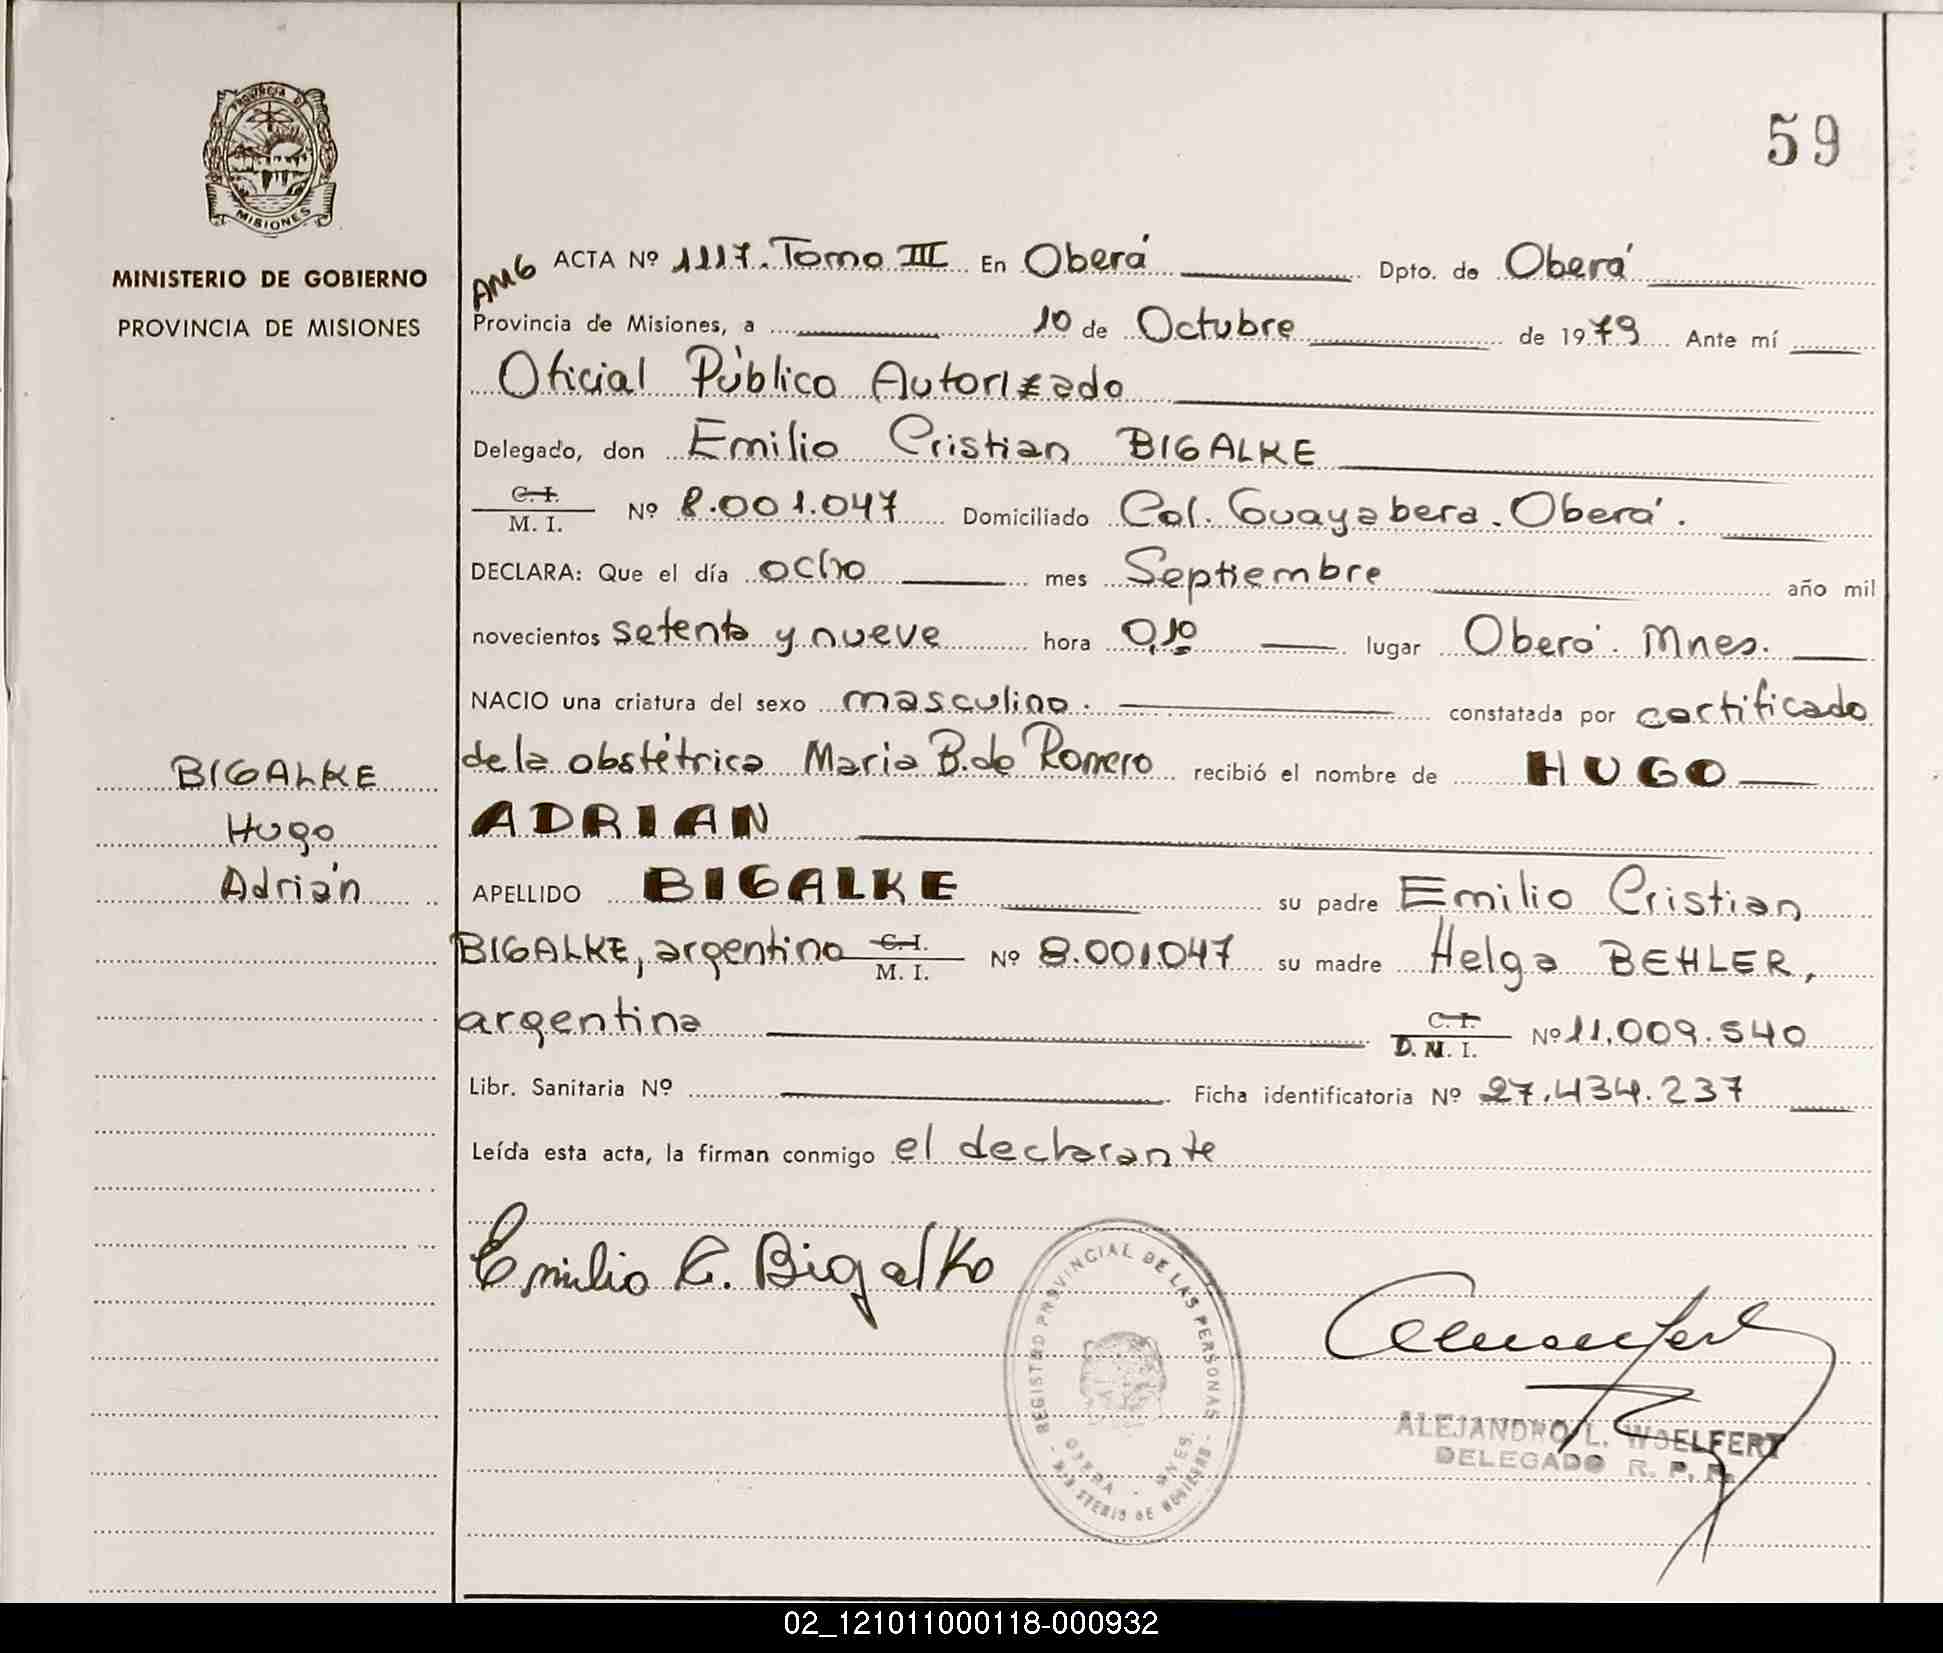 PROVINCIA DE
MISIONES
MINISTERIO DE GOBIERNO
PROVINCIA DE MISIONES
59
AMG
ACTA Nº 1117. Tomo III En Oberá Dpto. de Oberá
Provincia de Misiones, a 10 de Octubre de 1979 Ante mí
Oficial Público Autorizado
Delegado, don Emilio Cristian BIGALKE
C. I.
M. I. Nº 8.001.047 Domiciliado Col. Guayabera. Oberá.
DECLARA: Que el día ocho mes Septiembre año mil
novecientos setenta y nueve hora 0,10 lugar Oberá. Mnes.
NACIO una criatura del sexo masculino. constatada por certificado
de la obstétrica Maria B. de Romero recibió el nombre de HUGO
ADRIAN
APELLIDO BIGALKE su padre Emilio Cristian
BIGALKE, argentino C. I. M. I. Nº 8.001.047 su madre Helga BEHLER,
argentina C. I. D. N. I. Nº 11.009.540
Libr. Sanitaria Nº Ficha identificatoria Nº 27.434.237
Leída esta acta, la firman conmigo el declarante
BIGALKE
Hugo
Adrián
Emilio C. Bigalke
REGISTRO PROVINCIAL DE LAS PERSONAS
OBERA - MNES.
MINISTERIO DE GOBIERNO
ALEJANDRO L. WOELFERT
DELEGADO R. P. P.
02_121011000118-000932